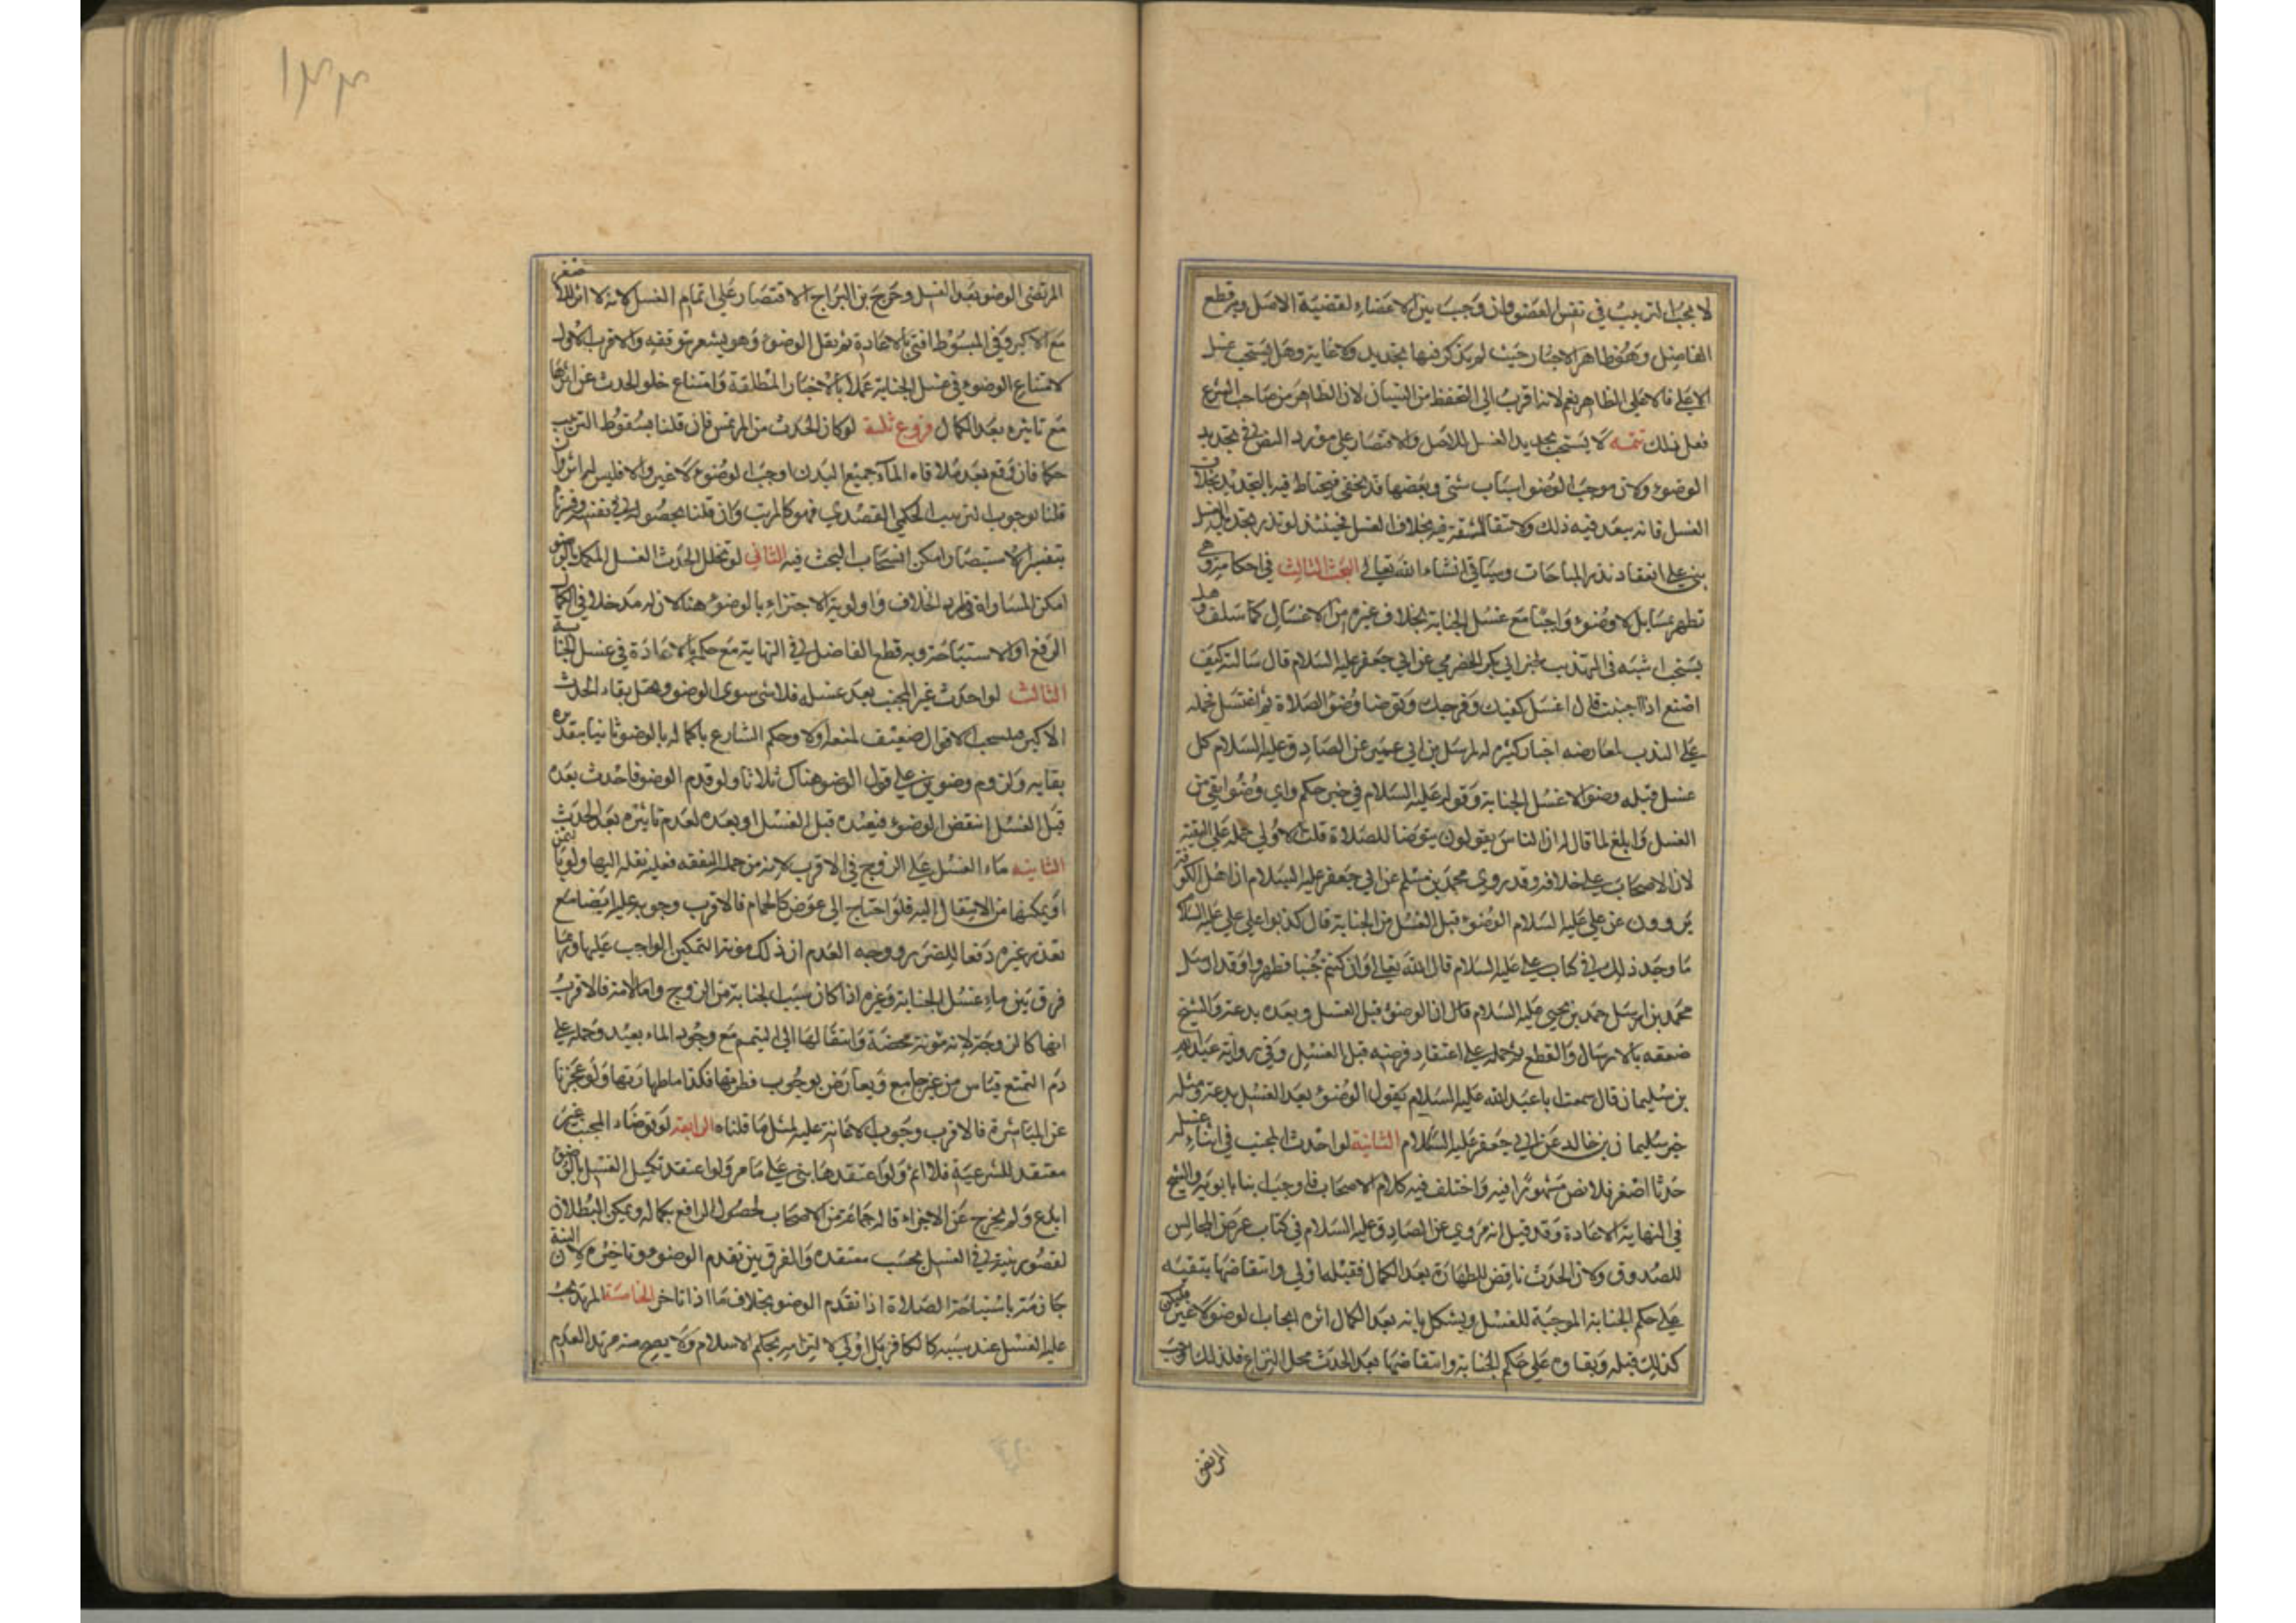 لا يجب الترتيب في نفس العضو وان وجب بين الاعضاء لقضية الاصل وبه قطع
الفاضل وهو ظاهر الاخبار حيث لم يذكر فيها تحديد ولا غاية وهل يستحب غسل
الاعلى فالاعلى الظاهر نعم لانه اقرب الى التحفظ من النسيان لان الظاهر من صاحب الشرع
فعل ذلك تتمه لا يستحب تجديد الغسل للاصل والاقتصار على مورد النص في تجديد
الوضوء ولان موجب الوضوء اسباب شتى وبعضها قد يخفى فيحتاط فيه بالتجديد بخلاف
الغسل فانه يبعد فيه ذلك ولانتفاء المشقة فيه بخلاف الغسل فحينئذ لو نذر تجديد الغسل
بني على انعقاد نذر المباحات وسياتي انشاء الله تعالى البحث الثالث في احكامه وهي
تظهر بمسايل لا وضوء واجبا مع غسل الجنابة بخلاف غيره من الاغسال كما سلف وهل
يستحب اثبته في التهذيب لخبر ابي بكر الحضرمي عن ابي جعفر عليه السلام قال سالته كيف
اصنع اذا اجنبت قال اغسل كفيك وفرجك وتوضا وضوء الصلاة ثم اغتسل فحمله
على الندب لمعارضه اخبار كثيره له لمرسل بن ابي عمير عن الصادق عليه السلام كل
غسل قبله وضوء الا غسل الجنابة وقوله عليه السلام في خبر حكم واي وضوء انقى من
الغسل وابلغ لما قال له ان الناس يقولون يتوضا للصلاة قلت الاولى حمله على التقية
لان الاصحاب على خلافه وقد روى محمد بن مسلم عن ابي جعفر عليه السلام ان اهل الكوفة
يروون عن علي عليه السلام الوضوء قبل الغسل من الجنابة قال كذبوا على علي عليه السلام
ما وجد ذلك في كتاب علي عليه السلام قال الله تعالى وان كنتم جنبا فطهروا وقد ارسل
محمد بن احمد بن يحيى عليه السلام قال ان الوضوء قبل الغسل وبعده بدعة والشيخ
ضعفه بالارسال والقطع ثم حمله على اعتقاد فرضه قبل الغسل وفي رواية عبد الله
بن سليمان قال سمعت ابا عبد الله عليه السلام يقول الوضوء بعد الغسل بدعة ومثله
خبر سليمان بن خالد عن ابي جعفر عليه السلام الثانية لو احدث المجنب في اثناء غسله
حدثا اصغر فلا نص مشهورا فيه واختلف فيه كلام الاصحاب فاوجب ابنا بابويه والشيخ
في النهاية الاعادة وقد قيل انه مروي عن الصادق عليه السلام في كتاب عرض المجالس
للصدوق ولان الحدث ناقض للطهارة بعد الكمال فقبله اولى وانتقاضها يبقيه
على حكم الجنابة الموجبة للغسل ويشكل بانه بعد الكمال اثره ايجاب الوضوء لا غير فليكن
كذلك قبله وبقاوه على حكم الجنابة وانتقاضها بعد الحدث محل النزاع فلذلك اوجب
المرتضى
١٣٣
المرتضى الوضوء بعد الغسل وخرج بن البراج الاقتصار على اتمام الغسل لانه لا اثر للاصغر
مع الاكبر وفي المبسوط افتى بالاعادة ثم نقل الوضوء وهو يشعر بتوقفه والاقرب الاول
لامتناع الوضوء في غسل الجنابة عملا بالاخبار المطلقة وامتناع خلو الحدث عن اثرها
مع تاثيره بعد الكمال فروع ثلثة لو كان الحدث من المرتمس فان قلنا بسقوط الترتيب
حكما فان وقع بعد ملاقاه الماء جميع البدن اوجب الوضوء لا غير والا فليس له اثر وان
قلنا بوجوب الترتيب الحكمي القصدي فهو كالمرتب وان قلنا بحصوله في نفسه وفسرناه
بتفسير الاستبصار امكن انسحاب البحث فيه الثاني لو تخلل الحدث الغسل المكمل بالوضوء
امكن المساواة في طرد الخلاف واولوية الاجتزاء بالوضوء هنا لان له مدخلا في اكمال
الرفع او الاستباحة وبه قطع الفاضل في النهاية مع حكمه بالاعادة في غسل الجنابة
الثالث لو احدث غير المجنب بعد غسله فلا شي سوى الوضوء وهل بقاء الحدث
الاكبر بقايه ولزوم وضوئين على قول الوضوء هناك ثلاثا ولو قدم الوضوء فاحدث بعده
قبل الغسل انتقض الوضوء فيعيده قبل الغسل او بعده لعدم تاثيره بعد الحدث
الثانيه ماء الغسل على الزوج في الاقرب لانه من جملة النفقه فعليه نقله اليها ولو بثمن
او يمكنها من الانتقال اليه فلو احتاج الى عوض كالحمام فالاقرب وجوبه عليه ايضا مع
تعذر غيره دفعا للضرر ووجه العدم ان ذلك مؤنة التمكين الواجب عليها وربما
فرق بين ماء غسل الجنابة وغيره اذا كان سبب الجنابة من الزوج واما الامة فالاقرب
انها كالزوجة لانه مؤنة محضة وانتقالها الى التيمم مع وجود الماء بعيد وحمله على
دم التمتع قياس من غير جامع ويعارض بوجوب فطرتها فكذا ماء طهارتها ولو عجزنا
عن المباشرة فالاقرب وجوب الاعانة عليه لمثل ما قلناه الرابعة لو توضاء المجنب غير
معتقد للشرعية فلا اثم ولو اعتقدها بني على ما مر ولو اعتقد تكميل الغسل بالوضوء
ابدع ولم يخرج عن الاجزاء قاله جماعة من الاصحاب لحصول الرافع بكماله ويمكن البطلان
لقصور نيته في الغسل بحسب معتقده والفرق بين تقدم الوضوء وتاخيره لان النية
جازمة باستباحة الصلاة اذا تقدم الوضوء بخلاف ما اذا تاخر الخامسة المرتد يجب
عليه الغسل عند سببه كالكافر بل اولى لالتزامه بحكم الاسلام ولا يصح منه مرتدا لعدم